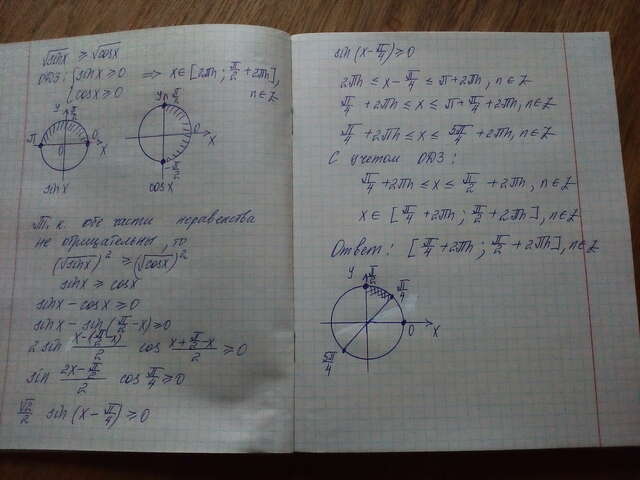 √sinx ≥ √cosx
ОДЗ: { sinx ≥ 0 ⟹ x∈[2πn; π/2+2πn],
cosx ≥ 0 n∈Z
y π/2
π 0 0 x
sinx
y π/2
0 x
-π/2
cosx
Т.к. обе части неравенства
не отрицательны, то
(√sinx)² ≥ (√cosx)²
sinx ≥ cosx
sinx - cosx ≥ 0
sinx - sin(π/2 - x) ≥ 0
2 sin (x-(π/2-x))/2 cos (x+π/2-x)/2 ≥ 0
sin (2x-π/2)/2 cos π/4 ≥ 0
√2/2 sin(x-π/4) ≥ 0
sin(x-π/4) ≥ 0
2πn ≤ x-π/4 ≤ π+2πn, n∈Z
π/4 +2πn ≤ x ≤ π+π/4+2πn, n∈Z
π/4 +2πn ≤ x ≤ 5π/4 +2πn, n∈Z
С учетом ОДЗ:
π/4 +2πn ≤ x ≤ π/2 +2πn, n∈Z
x∈[π/4 +2πn; π/2+2πn], n∈Z
Ответ: [π/4+2πn; π/2+2πn], n∈Z
y π/2
π/4
0 x
5π/4